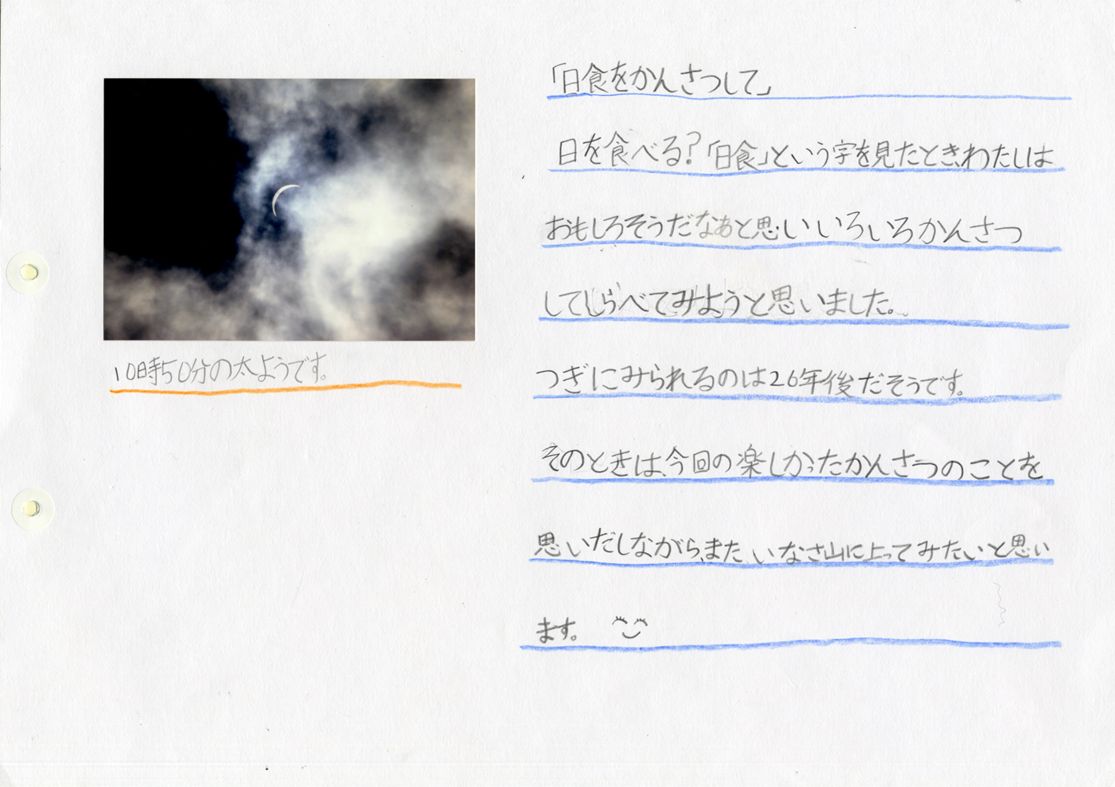 10時50分の太ようです。
「日食をかんさつして」
日を食べる?「日食」という字を見たとき、わたしは
おもしろそうだなあと思いいろいろかんさつ
してしらべてみようと思いました。
つぎにみられるのは26年後だそうです。
そのときは、今回の楽しかったかんさつのことを
思いだしながら、また、いなさ山に上ってみたいと思い
ます。